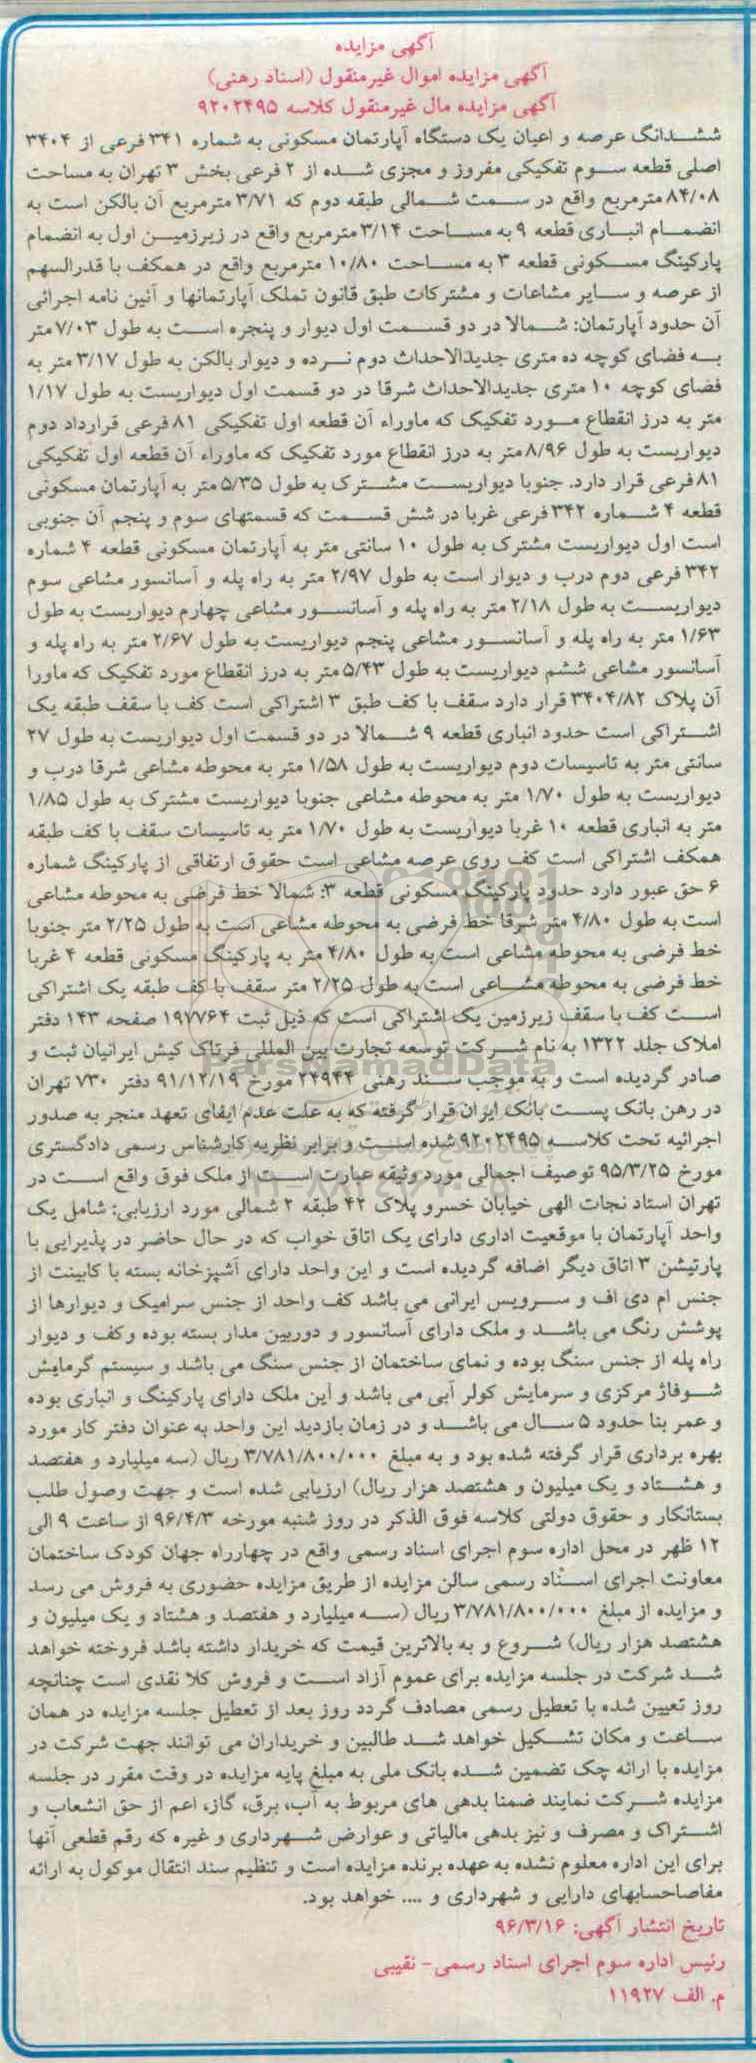 آگهی مزایده
آگهی مزایده اموال غیرمنقول (اسناد رهنی)
آگهی مزایده مال غیرمنقول کلاسه ۹۲۰۲۴۹۵
ششدانگ عرصه و اعیان یک دستگاه آپارتمان مسکونی به شماره ۳۴۱ فرعی از ۳۴۰۴
اصلی قطعه سوم تفکیکی مفروز و مجزی شده از ۲ فرعی بخش ۳ تهران به مساحت
۸۴/۰۸ مترمربع واقع در سمت شمالی طبقه دوم که ۳/۷۱ مترمربع آن بالکن است به
انضمام انباری قطعه ۹ به مساحت ۳/۱۴ مترمربع واقع در زیرزمین اول به انضمام
پارکینگ مسکونی قطعه ۳ به مساحت ۱۰/۸۰ مترمربع واقع در همکف با قدرالسهم
از عرصه و سایر مشاعات و مشترکات طبق قانون تملک آپارتمانها و آئین نامه اجرائی
آن حدود آپارتمان: شمالا در دو قسمت اول دیوار و پنجره است به طول ۷/۰۳ متر
به فضای کوچه ده متری جدیدالاحداث دوم نرده و دیوار بالکن به طول ۳/۱۷ متر به
فضای کوچه ۱۰ متری جدیدالاحداث شرقا در دو قسمت اول دیواریست به طول ۱/۱۷
متر به درز انقطاع مورد تفکیک که ماوراء آن قطعه اول تفکیکی ۸۱ فرعی قرارداد دوم
دیواریست به طول ۸/۹۶ متر به درز انقطاع مورد تفکیک که ماوراء آن قطعه اول تفکیکی
۸۱ فرعی قرار دارد. جنوبا دیواریست مشترک به طول ۵/۳۵ متر به آپارتمان مسکونی
قطعه ۴ شماره ۳۴۲ فرعی غربا در شش قسمت که قسمتهای سوم و پنجم آن جنوبی
است اول دیواریست مشترک به طول ۱۰ سانتی متر به آپارتمان مسکونی قطعه ۴ شماره
۳۴۲ فرعی دوم درب و دیوار است به طول ۲/۹۷ متر به راه پله و آسانسور مشاعی سوم
دیواریست به طول ۲/۱۸ متر به راه پله و آسانسور مشاعی چهارم دیواریست به طول
۱/۶۳ متر به راه پله و آسانسور مشاعی پنجم دیواریست به طول ۲/۶۷ متر به راه پله و
آسانسور مشاعی ششم دیواریست به طول ۵/۴۳ متر به درز انقطاع مورد تفکیک که ماورا
آن پلاک ۳۴۰۴/۸۲ قرار دارد سقف با کف طبق ۳ اشتراکی است کف با سقف طبقه یک
اشتراکی است حدود انباری قطعه ۹ شمالا در دو قسمت اول دیواریست به طول ۲۷
سانتی متر به تاسیسات دوم دیواریست به طول ۱/۵۸ متر به محوطه مشاعی شرقا درب و
دیواریست به طول ۱/۷۰ متر به محوطه مشاعی جنوبا دیواریست مشترک به طول ۱/۸۵
متر به انباری قطعه ۱۰ غربا دیواریست به طول ۱/۷۰ متر به تاسیسات سقف با کف طبقه
همکف اشتراکی است کف روی عرصه مشاعی است حقوق ارتفاقی از پارکینگ شماره
۶ حق عبور دارد حدود پارکینگ مسکونی قطعه ۳: شمالا خط فرضی به محوطه مشاعی
است به طول ۴/۸۰ متر شرقا خط فرضی به محوطه مشاعی است به طول ۲/۲۵ متر جنوبا
خط فرضی به محوطه مشاعی است به طول ۴/۸۰ متر به پارکینگ مسکونی قطعه ۴ غربا
خط فرضی به محوطه مشاعی است به طول ۲/۲۵ متر سقف با کف طبقه یک اشتراکی
است کف با سقف زیرزمین یک اشتراکی است که ذیل ثبت ۱۹۷۷۶۴ صفحه ۱۴۳ دفتر
املاک جلد ۱۳۲۲ به نام شرکت توسعه تجارت بین المللی فرتاک کیش ایرانیان ثبت و
صادر گردیده است و به موجب سند رهنی ۲۴۹۴۴ مورخ ۹۱/۱۲/۱۹ دفتر ۷۳۰ تهران
در رهن بانک پست بانک ایران قرار گرفته که به علت عدم ایفای تعهد منجر به صدور
اجرائیه تحت کلاسه ۹۲۰۲۴۹۵ شده است و برابر نظریه کارشناس رسمی دادگستری
مورخ ۹۵/۳/۲۵ توصیف اجمالی مورد وثیقه عبارت است از ملک فوق واقع است در
تهران استاد نجات الهی خیابان خسرو پلاک ۴۲ طبقه ۲ شمالی مورد ارزیابی: شامل یک
واحد آپارتمان با موقعیت اداری دارای یک اتاق خواب که در حال حاضر در پذیرایی با
پارتیشن ۳ اتاق دیگر اضافه گردیده است و این واحد دارای آشپزخانه بسته با کابینت از
جنس ام دی اف و سرویس ایرانی می باشد کف واحد از جنس سرامیک و دیوارها از
پوشش رنگ می باشد و ملک دارای آسانسور و دوربین مدار بسته بوده وکف و دیوار
راه پله از جنس سنگ بوده و نمای ساختمان از جنس سنگ می باشد و سیستم گرمایش
شوفاژ مرکزی و سرمایش کولر آبی می باشد و این ملک دارای پارکینگ و انباری بوده
و عمر بنا حدود ۵ سال می باشد و در زمان بازدید این واحد به عنوان دفتر کار مورد
بهره برداری قرار گرفته شده بود و به مبلغ ۳/۷۸۱/۸۰۰/۰۰۰ ریال (سه میلیارد و هفتصد
و هشتاد و یک میلیون و هشتصد هزار ریال) ارزیابی شده است و جهت وصول طلب
بستانکار و حقوق دولتی کلاسه فوق الذکر در روز شنبه مورخه ۹۶/۴/۳ از ساعت ۹ الی
۱۲ ظهر در محل اداره سوم اجرای اسناد رسمی واقع در چهارراه جهان کودک ساختمان
معاونت اجرای اسناد رسمی سالن مزایده از طریق مزایده حضوری به فروش می رسد
و مزایده از مبلغ ۳/۷۸۱/۸۰۰/۰۰۰ ریال (سه میلیارد و هفتصد و هشتاد و یک میلیون و
هشتصد هزار ریال) شروع و به بالاترین قیمت که خریدار داشته باشد فروخته خواهد
شد شرکت در جلسه مزایده برای عموم آزاد است و فروش کلا نقدی است چنانچه
روز تعیین شده با تعطیل رسمی مصادف گردد روز بعد از تعطیل جلسه مزایده در همان
ساعت و مکان تشکیل خواهد شد طالبین و خریداران می توانند جهت شرکت در
مزایده با ارائه چک تضمین شده بانک ملی به مبلغ پایه مزایده در وقت مقرر در جلسه
مزایده شرکت نمایند ضمنا بدهی های مربوط به آب، برق، گاز، اعم از حق انشعاب و
اشتراک و مصرف و نیز بدهی مالیاتی و عوارض شهرداری و غیره که رقم قطعی آنها
برای این اداره معلوم نشده به عهده برنده مزایده است و تنظیم سند انتقال موکول به ارائه
مفاصاحسابهای دارایی و شهرداری و .... خواهد بود.
تاریخ انتشار آگهی: ۹۶/۳/۱۶
رئیس اداره سوم اجرای اسناد رسمی- نقیبی
م. الف ۱۱۹۲۷
ParsNamadData